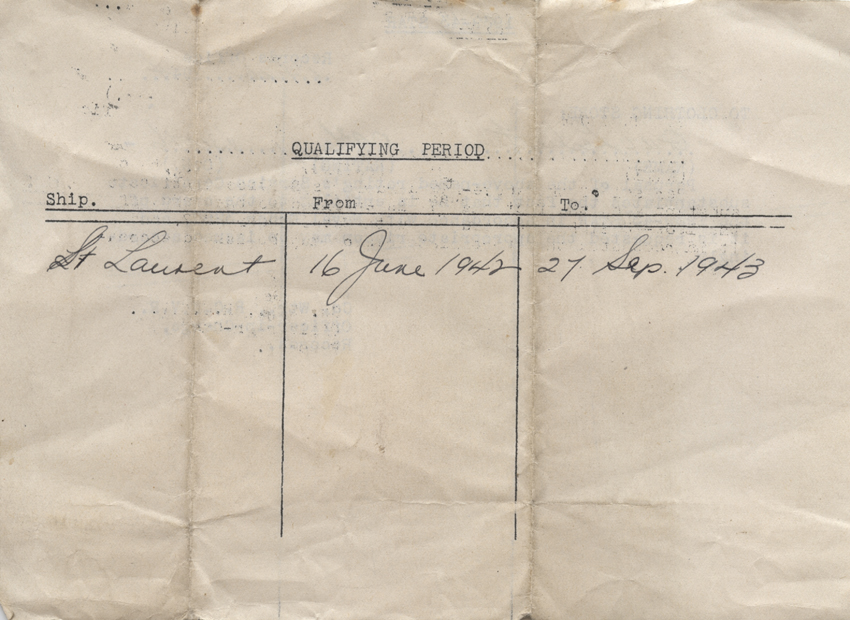 QUALIFYING PERIOD
Ship. From To.
St Laurent 16 June 1942 27 Sep. 1943